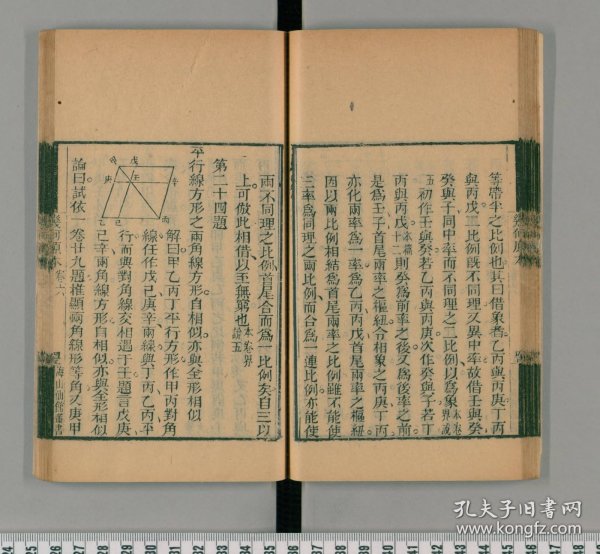 等帶半之比例也其曰借象者乙丙與丙庚丁丙
與丙戊二比例既不同理又異中率故借壬與癸
癸與子同中率而不同理之二比例以為象本卷界說
五初作壬與癸若乙丙與丙庚次作癸與子若丁
丙與丙戊本篇十二則癸為前率之後又為後率之前
是為壬子首尾兩率之樞紐令相象之丙庚丁丙
亦化兩率為一率為乙丙丙戊首尾兩率之樞紐
因以兩比例相結為首尾兩率之比例雖不能使
三率為同理之兩比例而合為一連比例亦能使
兩不同理之比例首尾合而為一比例矣自三以
上可倣此相借以至無窮也本卷界說五
第二十四題
平行線方形之兩角線方形自相似亦與全形相似
解曰甲乙丙丁平行方形作甲丙對角
線任作戊己庚辛兩線與丁丙乙丙平
行而與對角線交相遇于壬題言戊庚
己辛兩角線方形自相似亦與全形相似
論曰試依一卷廿九題推顯兩角線形等角又庚甲
幾何原本卷六
海山仙館叢書
甲
戊
丁
庚
壬
辛
乙
己
丙
孔夫子旧书网
www.kongfz.com
24 25 26 27 28 29 30 31 32 33 34 35 36 37 38 39 40 41 42 43 44 45 46 47 48